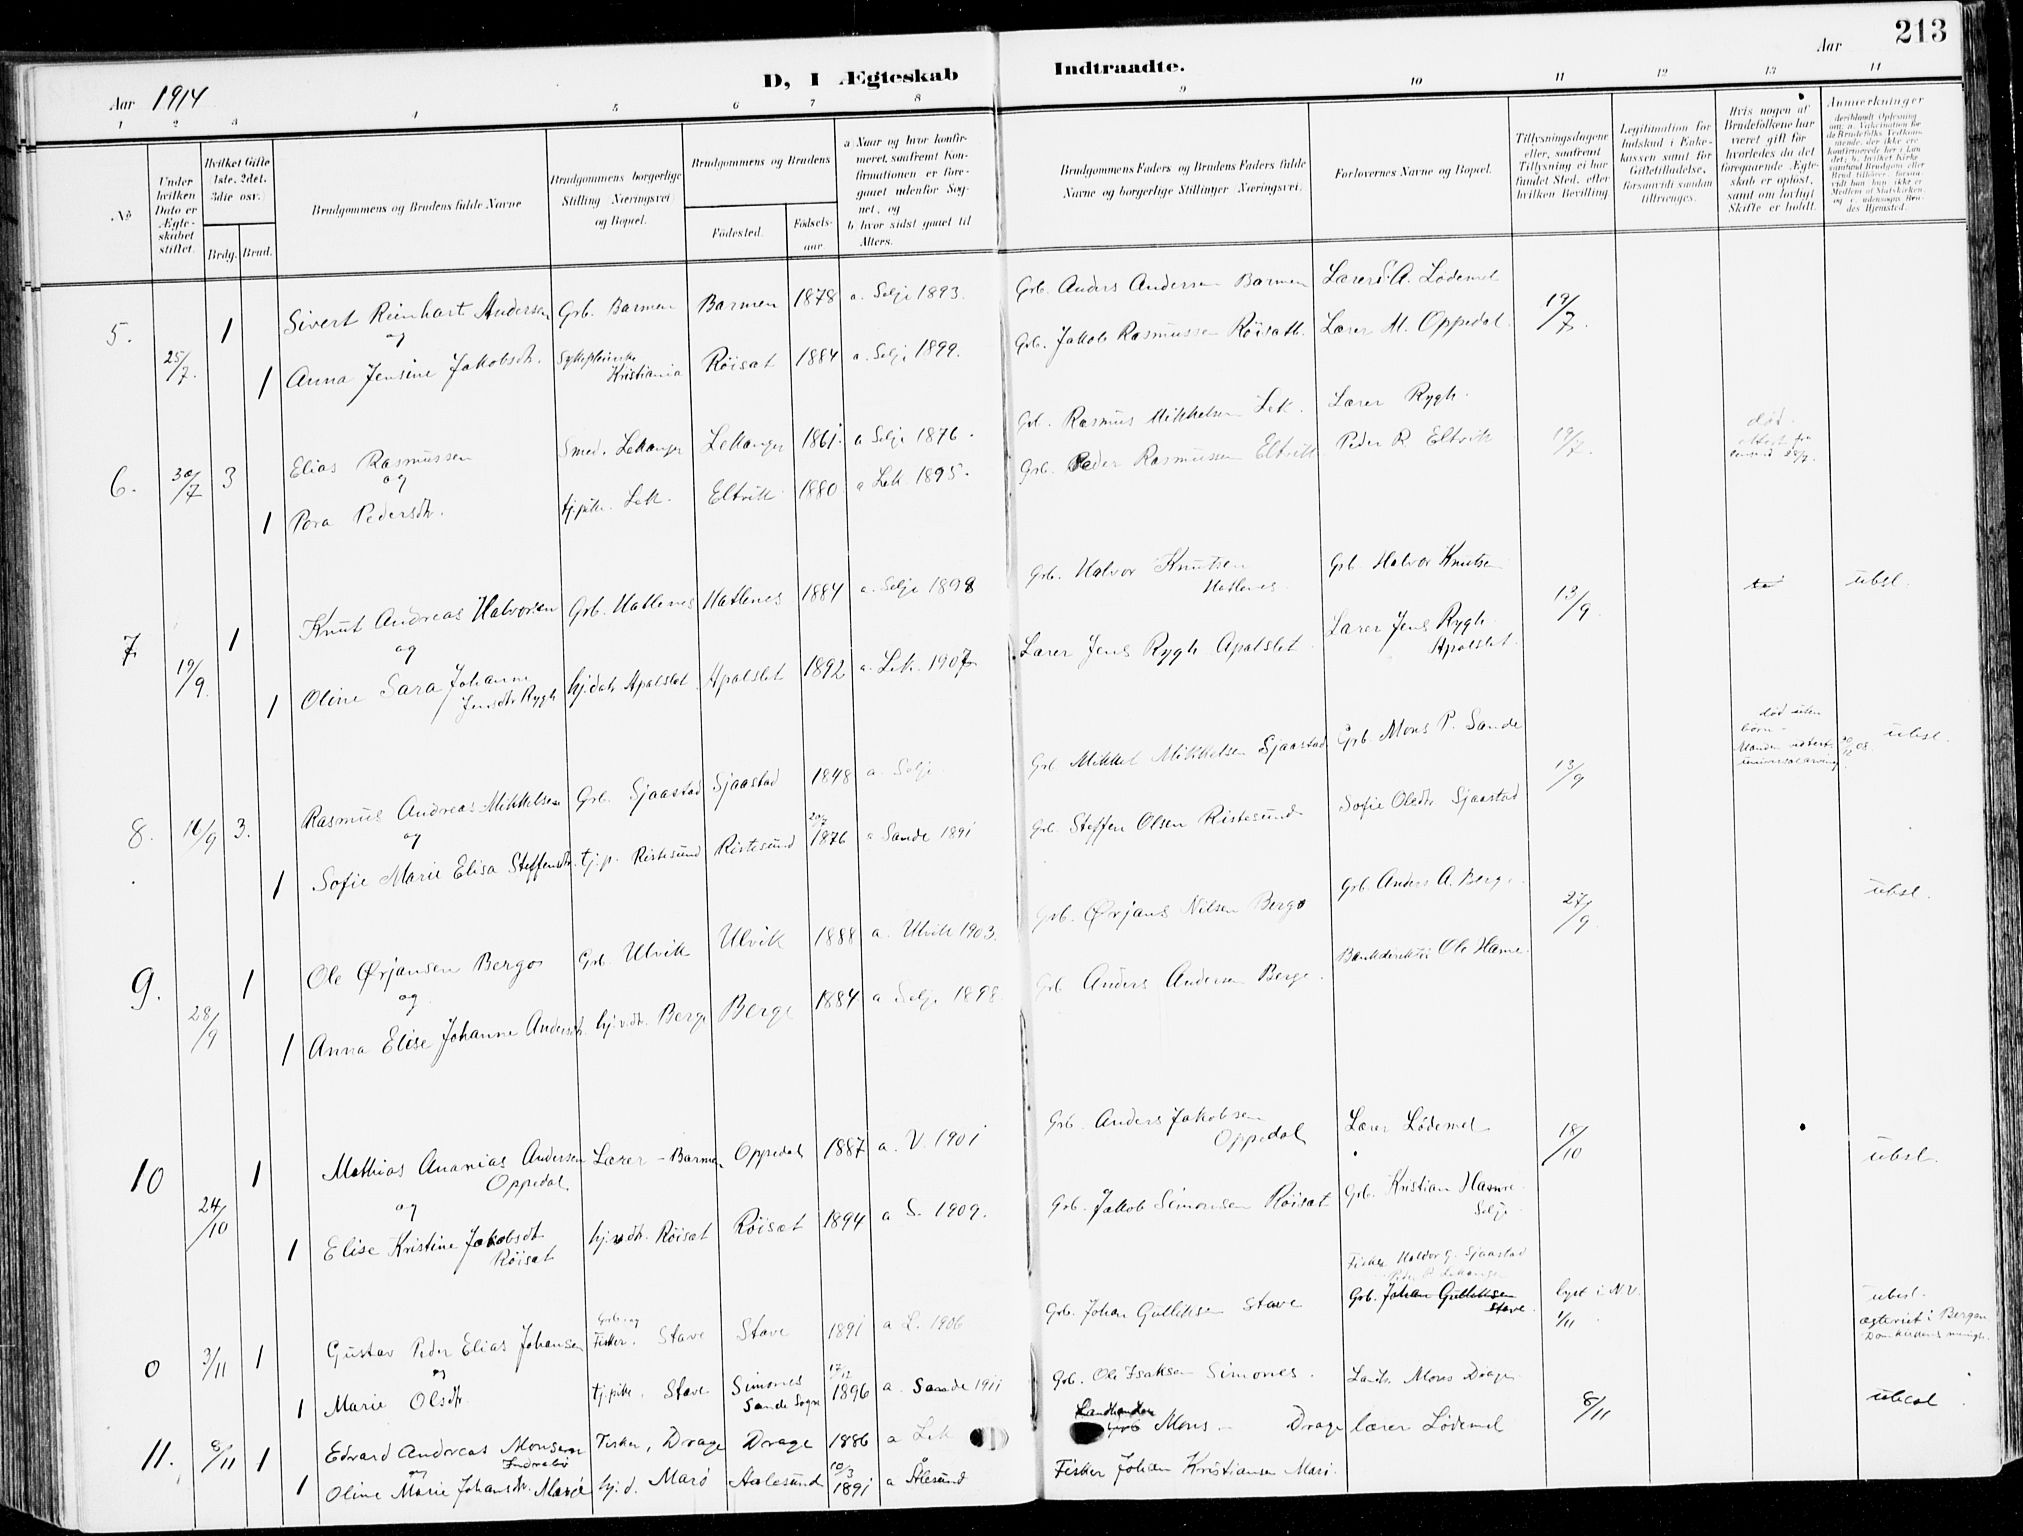 213
Aar 1914
D, I Ægteskab Indtraadte.
Aar
1 2 3 4 5 6 7 8 9 10 11 12 13 14
No.
Under hvilken Dato er Ægteskabet stiftet.
Hvilket Gifte 1ste, 2det, 3die osv.
Brdg. Brud.
Brudgommens og Brudens fulde Navne
Brudgommens borgerlige Stilling Næringsvei og Bopæl.
Brudgommens og Brudens
Fødested.
Fødselsaar.
a Naar og hvor konfirmeret, saafremt Konfirmationen er foregaaet udenfor Sognet, og
b hvor sidst gaaet til Alters.
Brudgommens Faders og Brudens Faders fulde Navne og borgerlige Stillinger Næringsvei.
Forlovernes Navne og Bopæl.
Tillysningsdagene eller, saafremt Tillysning ei har fundet Sted, efter hvilken Bevilling
Legitimation for Indskud i Enkekassen samt for Giftetilladelse, forsaavidt saadan tiltrænges.
Hvis nogen af Brudefolkene har været gift før, hvorledes da det foregaaende Ægteskab er opløst, samt om lovligt Skifte er holdt.
Anmærkninger
5. 25/7. 1 Sivert Reinhart Andersen Grb. Barmen Barmen 1878 a. Selje 1893. Grb. Anders Andersen Barmen Lærer S. A. Lødemel 19/7.
og
1 Anna Jensine Jakobsdt. Sykepleierske Kristiania Røisæt 1884 a. Selje 1899. Grb. Jakob Rasmussen Røisætt. Lærer M. Oppedal.
6. 30/7 3 Elias Rasmussen Smed. Lekanger Lekanger 1861. a Selje 1876. Rasmus Mikkelsen Lek. Lærer Rygh. 19/7. død.
og
1 Pedersdtr. tj.pike. Lek. Eltvik 1880 a Lek 1895. Grb. Peder Rasmussen Eltvik Peder R. Eltvik
7. 19/9. 1 Knut Andreas Halvorsen Grb. Hatlenes Hatlenes 1884 a. Selje 1898 Grb. Halvor Knutsen Hatlenes. Grb. Halvor Knutsen 13/9. ubsl.
og
1 Oline Sara Johanne Jensdtr. Rygh hj.datr. Apalset Apalset 1892 a. Lek. 1907. Lærer Jens Rygh Apalset. Lærer Jens Rygh Apalset.
8. 16/9 3. Rasmus Andreas Mikkelsen Grb. Sjaastad Sjaastad 1848 a. Selje. Grb. Mikkel Mikkelsen Sjaastad Grb Mons P. Sande 13/9 død uten børn. ubsl.
og
1 Sofie Marie Elisa Steffensdtr. tj.p. Ristesund Ristesund 1876 a Sande 1891 Grb. Steffen Olsen Ristesund Sofie Olsdtr Sjaastad
9. 28/9 1 Ole Ørjansen Bergo Grb. Ulvik Ulvik 1888 a. Ulvik 1903. Grb. Ørjans Nilsen Bergo Grb. Anders A. Berge. 27/9. ubsl.
og
1 Anna Elise Johanne Andersdtr. hj.v.dtr. Berge Berge 1884 a Selje 1898. Grb Anders Andersen Berge. Bankdirektør Ole Hamre.
10 24/10 1 Mathias Ananias Andersen Oppedal. Lærer - Barmen Oppedal 1887 a. V. 1901 Grb. Anders Jakobsen Oppedal Lærer Lødemel 18/10 ubsl.
og
1 Elise Kristine Jakobsdt Røisæt hj.v.dtr. Røisæt Røisæt 1894 a S. 1909. Grb. Jakob Simonsen Røisæt Grb. Kristian Hamre. Selje.
Fisker Haldor G. Sjaastad
Peder P. Lekanger
0 3/11 1 Gustav Peder Elias Johansen Grb. og Fisker. Stave Stave 1891 a L. 1906 Grb. Johan Gulliksen Stave Grb. Johan Gulliksen Stave lyst i N.V. 1/11. ubsl.
Bergen
og
1 Marie Olsdtr. tj.pike. Stave. Simones Sande Sogn 17/12 1896 a. Sande 1911 Grb. Ole Isaksen Simones. Landh. Mons Drage
11. 8/11 1 Edvard Andreas Monsen Fisker, Drage Drage 1886 a Lek Landhandler Mons - Drage lærer Lødemel 8/11 ubesl.
og
1 Oline Marie Johansdtr. Marø hj.d. Marø Aalesund 10/3 1891 a Ålesund Fisker Johan Kristiansen Marø.